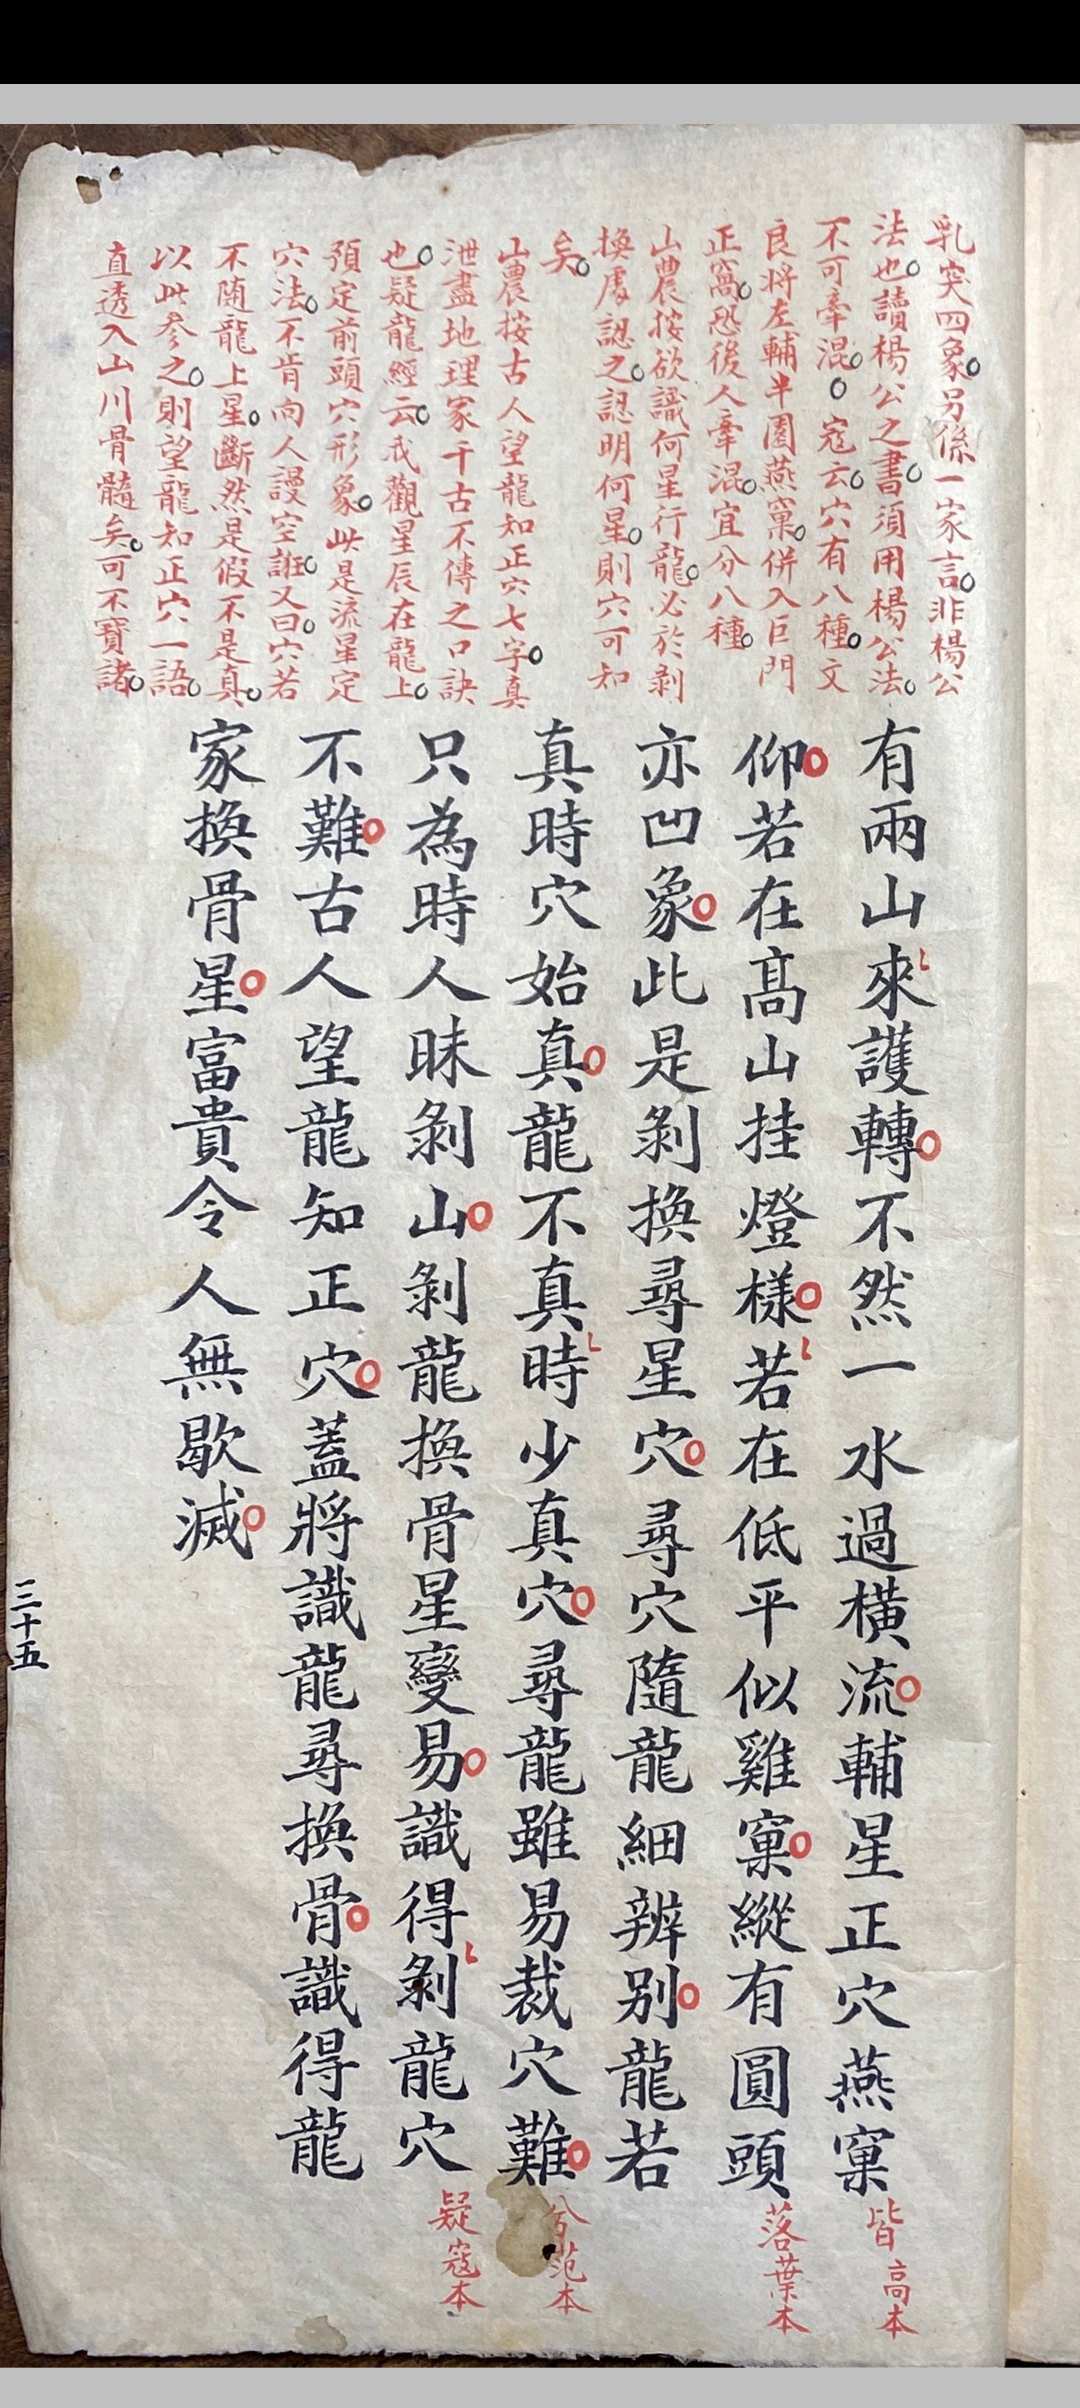 乳突四象另係一家言非楊公
法也讀楊公之書須用楊公法
不可牽混寇云穴有八種文
良將左輔半圓燕窠併入巨門
正窩恐後人牽混宜分八種
山農按欲識何星行龍必於剝
換處認之認明何星則穴可知
矣
山農按古人望龍知正穴七字真
泄盡地理家千古不傳之口訣
也疑龍經云我觀星辰在龍上
預定前頭穴形象此是流星定
穴法不肯向人謾空誑又曰穴若
不随龍上星斷然是假不是真
以此参之則望龍知正穴一語
直透入山川骨髓矣可不寶諸
有兩山來護轉不然一水過橫流輔星正穴燕窠
仰若在高山挂燈樣若在低平似雞窠縱有圓頭
亦凹象此是剝換尋星穴尋穴隨龍細辨别龍若
真時穴始真龍不真時少真穴尋龍雖易裁穴難
只為時人昧剝山剝龍換骨星變易識得剝龍穴
不難古人望龍知正穴蓋將識龍尋換骨識得龍
家換骨星富貴令人無歇滅
皆高本
落葉本
兮范本
疑寇本
三十五